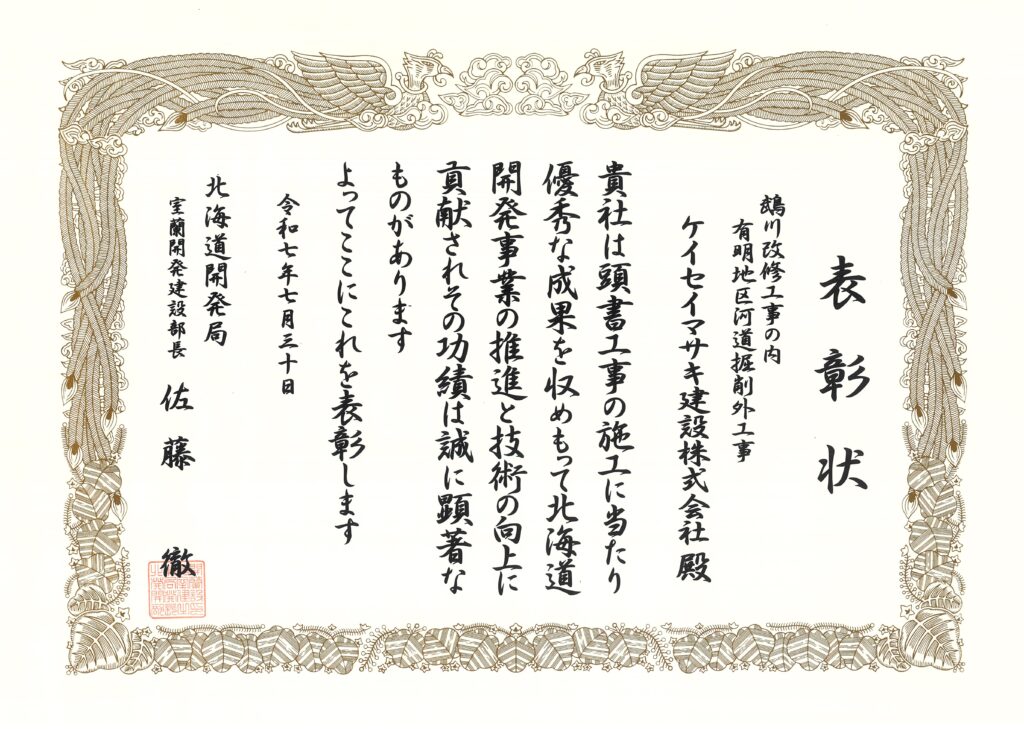 表彰状
鵡川改修工事の内
有明地区河道掘削外工事
ケイセイマサキ建設株式会社 殿
貴社は頭書工事の施工に当たり
優秀な成果を収めもって北海道
開発事業の推進と技術の向上に
貢献されその功績は誠に顕著な
ものがあります
よってここにこれを表彰します
令和七年七月三十日
北海道開発局
室蘭開発建設部長 佐藤 徹